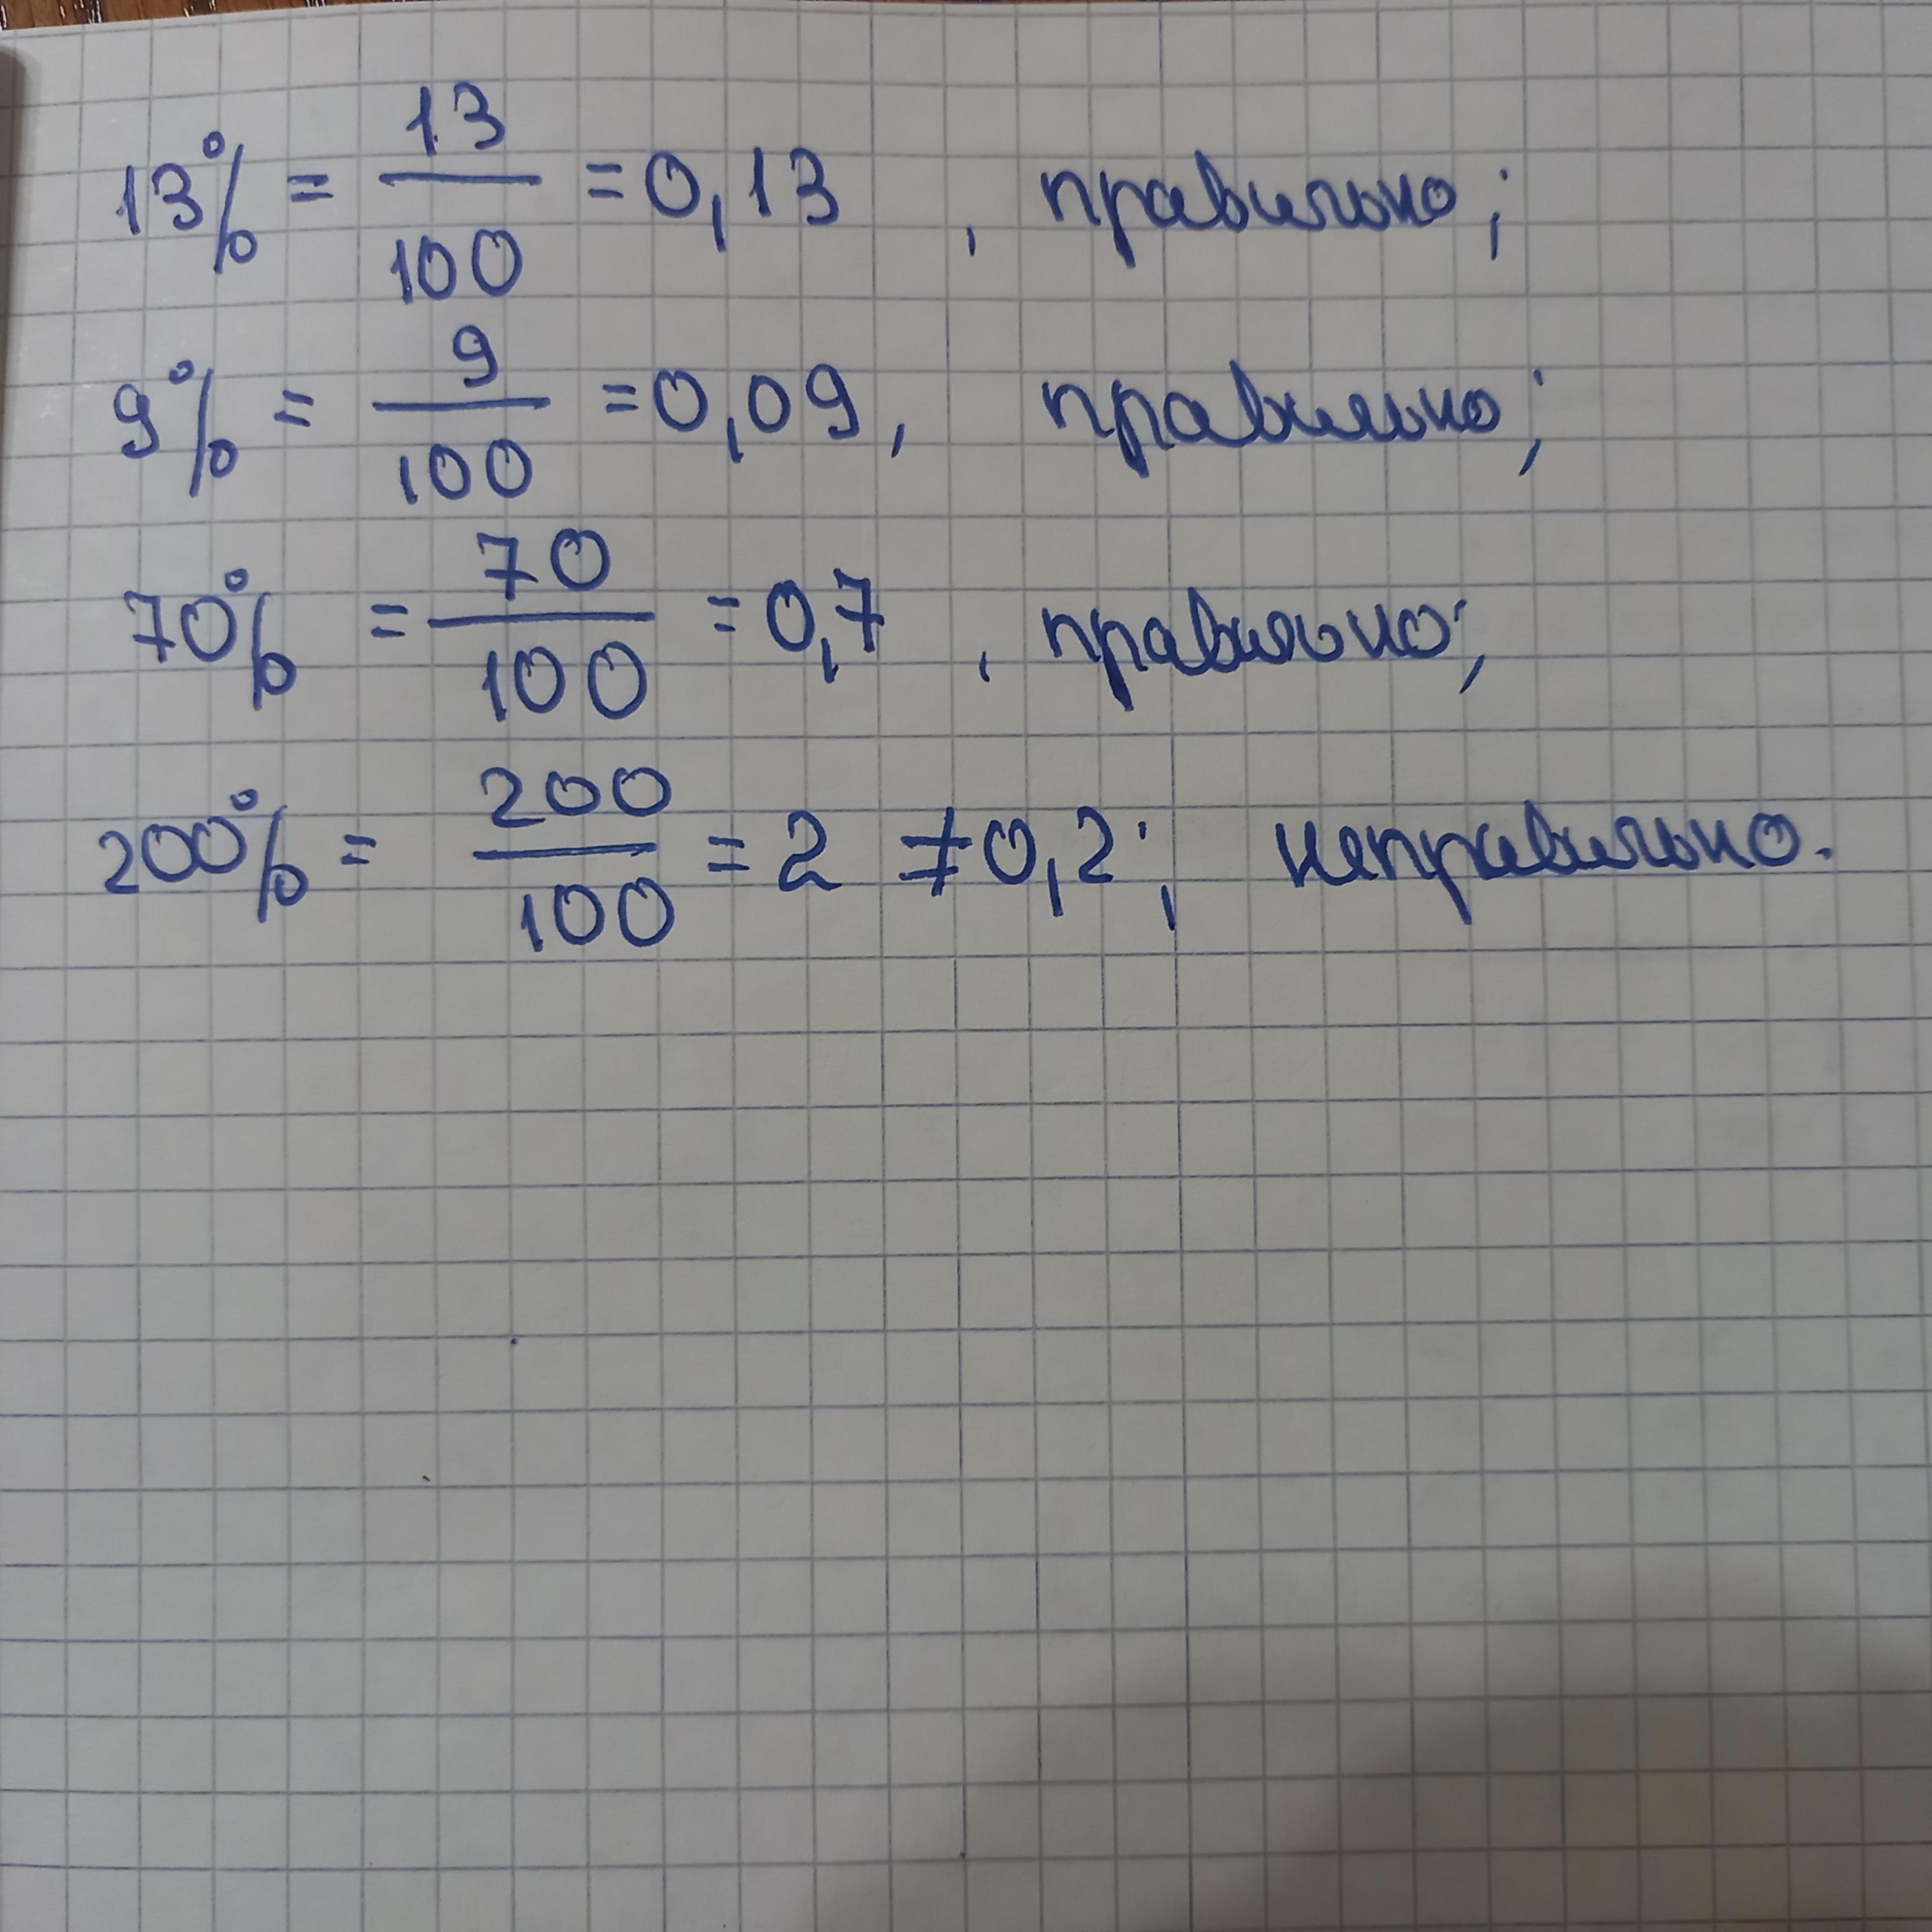 13% = 13/100 = 0,13 , правильно;
9% = 9/100 = 0,09, правильно;
70% = 70/100 = 0,7 , правильно;
200% = 200/100 = 2 ≠ 0,2; неправильно.